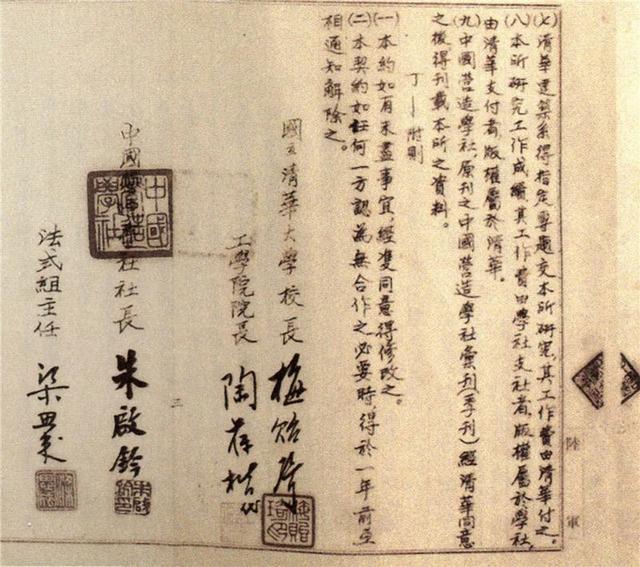 (七)清華建築系得指定專題交本所研究,其工作費由清華付之。
(八)本所研究工作成績其工作費由學社支付者,版權屬於學社,
由清華支付者,版權屬於清華。
(九)中國營造學社原刊之中國營造學社彙刊(季刊)經清華同意
之後得刊載本所之資料。
丁—附則
(一)本約如有未盡事宜,經雙同意得修改之。
(二)本契約如任何一方認為無合作之必要時,得於一年前互
相通知解除之。
國立清華大學校長 梅貽琦
工學院院長 陶葆楷
三
中國營造學社社長 朱啟鈐
法式組主任 梁思成
中國營造學社
陸軍